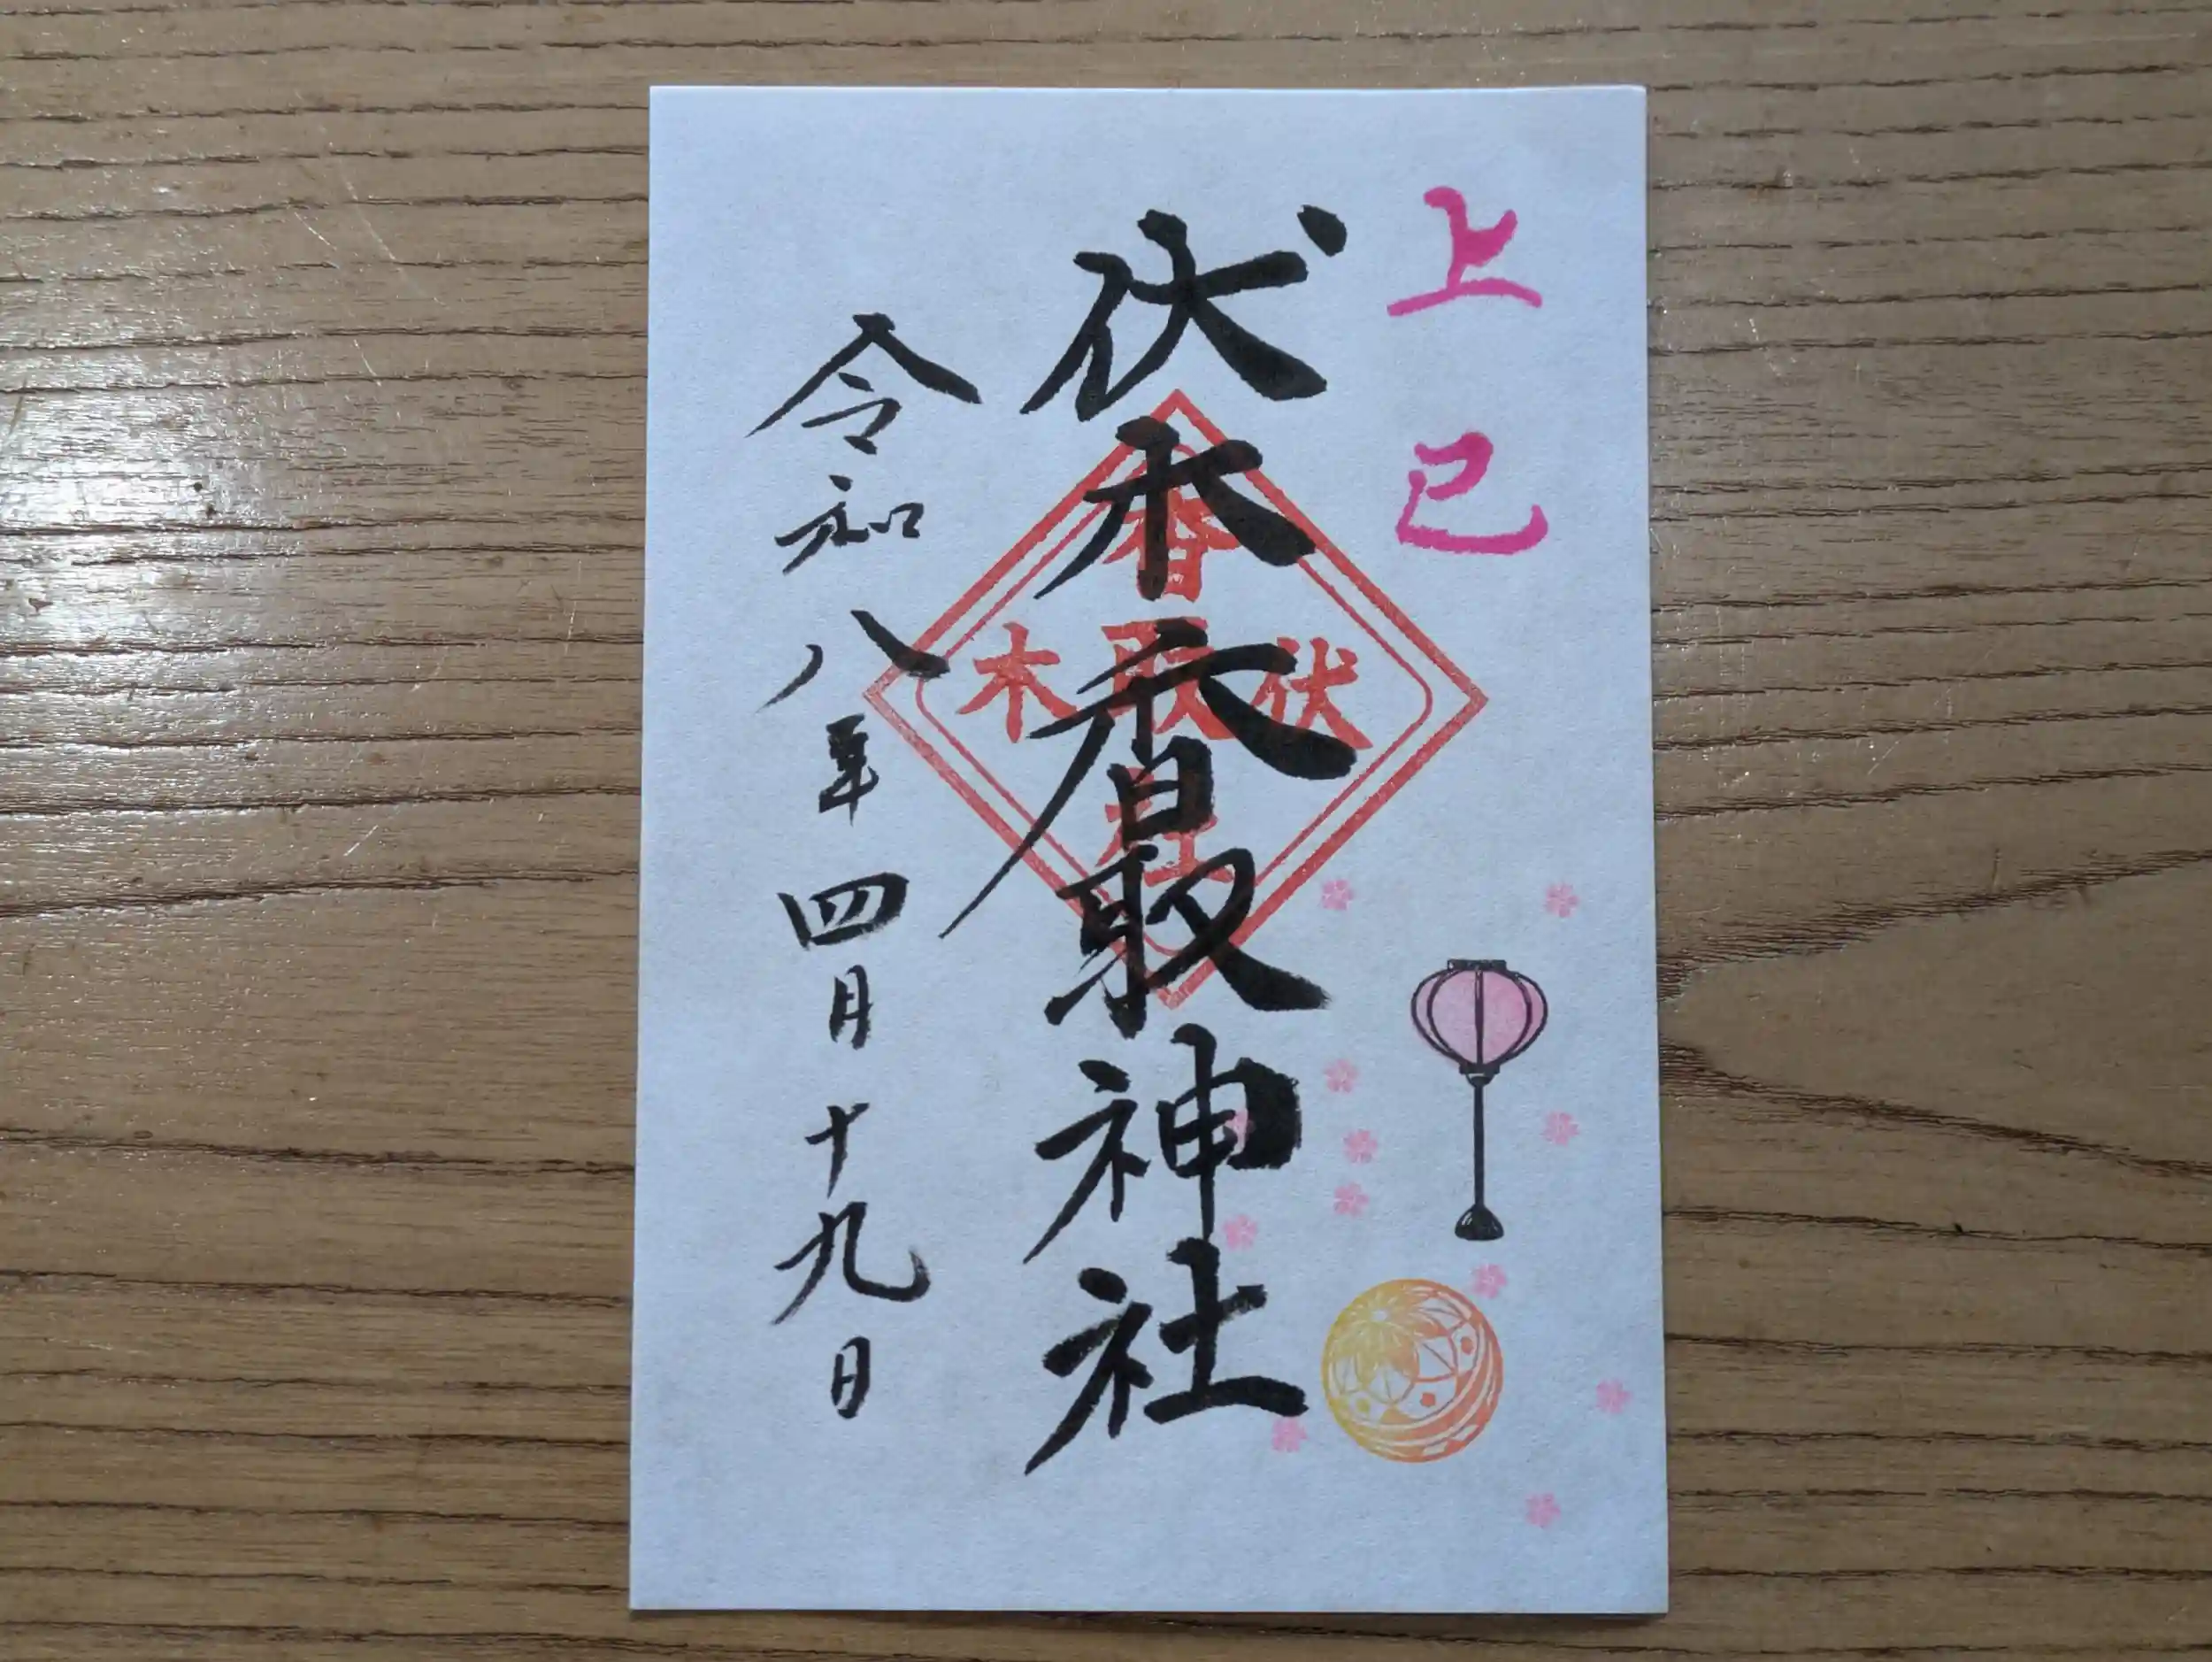 上巳
伏木香取神社
香
伏取木
社
令和八年四月十九日